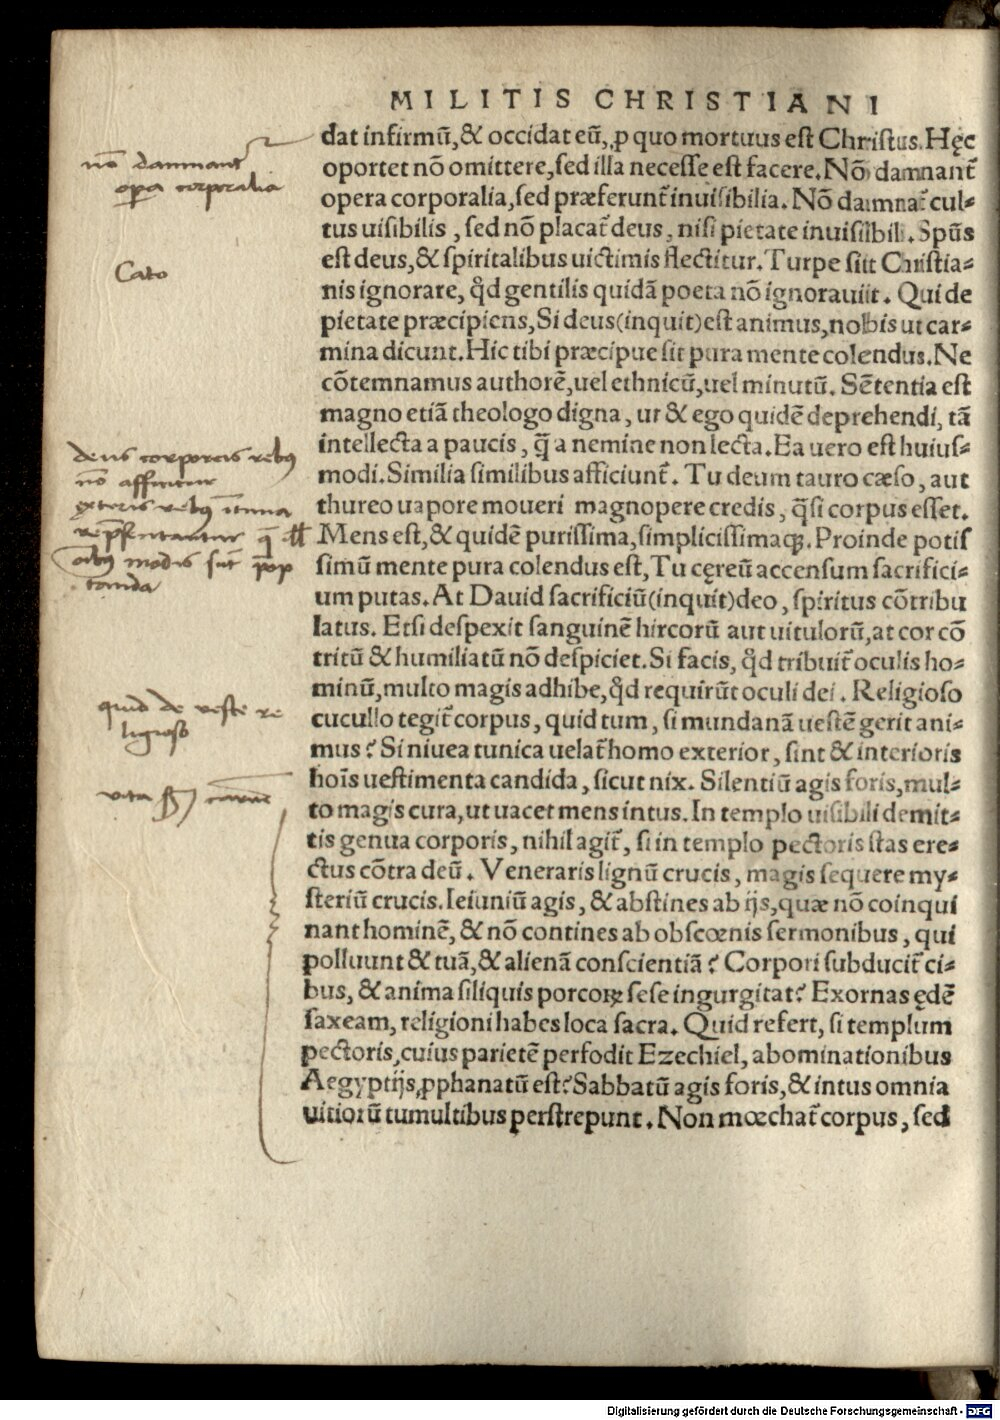 MILITIS CHRISTIANI
dat infirmũ, & occidat eũ, ꝓ quo mortuus est Christus. Hęc
oportet nõ omittere, sed illa necesse est facere. Nõ damnant᷑
opera corporalia, sed præferunt᷑ inuisibilia. Nõ damnat᷑ cul⸗
tus uisibilis, sed nõ placat᷑ deus, nisi pietate inuisibili. Spũs
est deus, & spiritalibus uictimis flectitur. Turpe sit Christia⸗
nis ignorare, qđ gentilis quidã poeta nõ ignorauit. Qui de
pietate præcipiens, Si deus (inquit) est animus, nobis ut car⸗
mina dicunt. Hic tibi præcipue sit pura mente colendus. Ne
cõtemnamus authorẽ, uel ethnicũ, uel minutũ. Sẽtentia est
magno etiã theologo digna, ut & ego quidẽ deprehendi, tã
intellecta a paucis, q̃ a nemine non lecta. Ea uero est huius⸗
modi. Similia similibus afficiunt᷑. Tu deum tauro cæso, aut
thureo uapore moueri magnopere credis, q̃si corpus esset.
Mens est, & quidẽ purissima, simplicissimaqꝫ. Proinde potis
simũ mente pura colendus est, Tu cęreũ accensum sacrifici⸗
um putas. At Dauid sacrificiũ (inquit) deo, spiritus cõtribu
latus. Etsi despexit sanguinẽ hircorũ aut uitulorũ, at cor cõ
tritũ & humiliatũ nõ despiciet. Si facis, qđ tribuit᷑ oculis ho⸗
minũ, multo magis adhibe, qđ requirũt oculi dei. Religioso
cucullo tegit᷑ corpus, quid tum, si mundanã uestẽ gerit ani⸗
mus? Si niuea tunica uelat᷑ homo exterior, sint & interioris
hoĩs uestimenta candida, sicut nix. Silentiũ agis foris, mul⸗
to magis cura, ut uacet mens intus. In templo uisibili demit⸗
tis genua corporis, nihil agit᷑, si in templo pectoris stas ere⸗
ctus cõtra deũ. Veneraris lignũ crucis, magis sequere my⸗
steriũ crucis. Ieiuniũ agis, & abstines ab ijs, quæ nõ coinqui
nant hominẽ, & nõ contines ab obscœnis sermonibus, qui
polluunt & tuã, & alienã conscientiã? Corpori subducit᷑ ci⸗
bus, & anima siliquis porcoꝝ sese ingurgitat? Exornas ędẽ
saxeam, religioni habes loca sacra. Quid refert, si templum
pectoris, cuius parietẽ perfodit Ezechiel, abominationibus
Aegyptijs, ꝓphanatũ est? Sabbatũ agis foris, & intus omnia
uitiorũ tumultibus perstrepunt. Non mœchat᷑ corpus, sed
nõ damnant᷑
opera corporalia
Cato
deus corporeis rebus
nõ afficitur
exteris rebus
quid de veste re
ligioso
vita
Digitalisierung gefördert durch die Deutsche Forschungsgemeinschaft - DFG